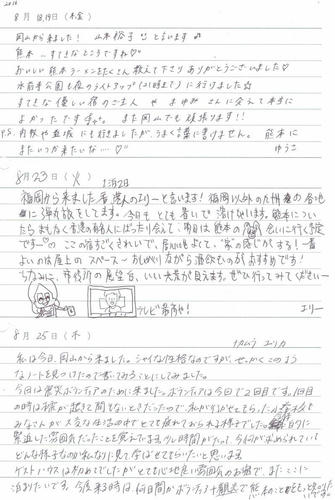 2016
8月 18,19日(木金)
岡山から来ました! 山本裕子 と言います♪
熊本…すてきなところですね♡
おいしい熊本ラーメンをたくさん教えて下さりありがとうございました☆
水前寺公園も夜のラストアップ(21時まで)に行けました☆
すてきな優しい宿のご主人や まゆみさんに会えて本当に
よかったです。また岡山でも頑張ります!!
P.S. 内牧や益城にも行きましたが、うまく言葉に書けません。熊本に
またいつか来たいな…♡ ゆうこ
8月23日(火) 1泊2日
福岡から来ました香港人のエリーと言います! 福岡以外の九州の各地
に弾丸旅をしてます。今日も とても暑いで 溶けています。熊本につい
たらまもなく 明日は熊本の 会いに行く予定
です ここの宿がきれいで、居心地よくて、"家"の感じがする! 一番
よいのは屋上のスペース～おしゃべりながら酒飲むのがおすすめです!
ちなみに、市役所の展望台、いい夜景が見えます。ぜひ行ってみてください～
テレビ エリー
8月25日(木) ナカムラ ユリカ
私は今日、岡山から来ました。シャイな性格なのですが、せっかくこのよう
なノートを見つけたので書いてみることにしてみました。
今回は震災ボランティアのために来ました。ボランティアは今回で2回目です。1回目
の時は地震が起きて間もないときだったので
みなさんが大変な生活の中でとても疲れておられる様子でした。
緊迫した雰囲気だったことを覚えています。少し時間がたって、今何が求められている
どんな様子なのかなど見て学ばせてもらいたいと思います。
ゲストハウスは初めてでしたがとても心地良い雰囲気のお宿で、またここに
泊まりたいです。今度来る時は、何日間かボランティアや観光で熊本のことを